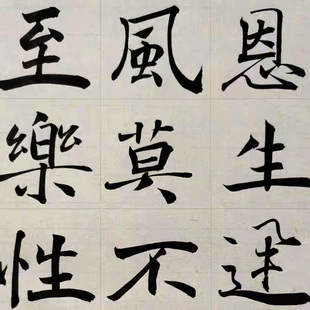 恩生迅
風莫不
至樂性